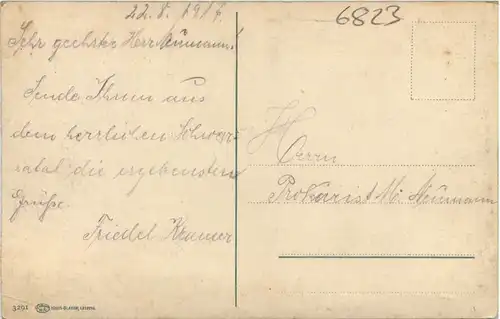 22. 8. 1914.
6823
Sehr geehrter Herr Neumann!
Sende Ihnen aus
dem herrlichen Schwarz-
atal die ergebensten
Grüße.
Friedel Kramer
H
Herrn
Prokurist M. Neumann
3201